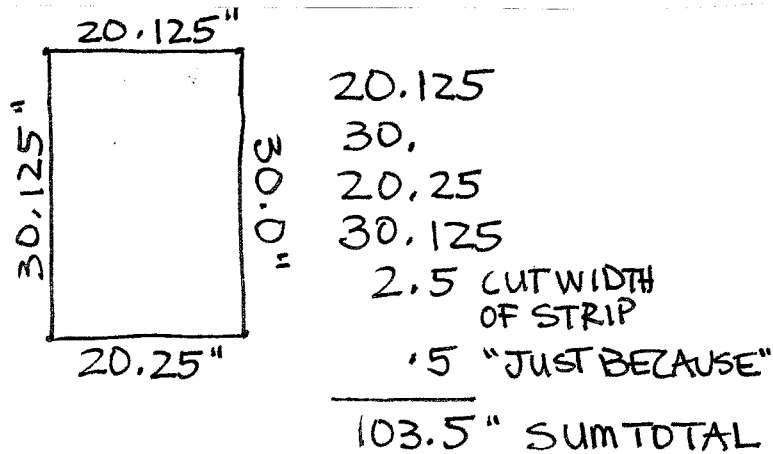 20.125"
30.125"
30.0"
20.25"
20.125
30.
20.25
30.125
2.5 CUT WIDTH
OF STRIP
.5 "JUST BECAUSE"
103.5" SUM TOTAL